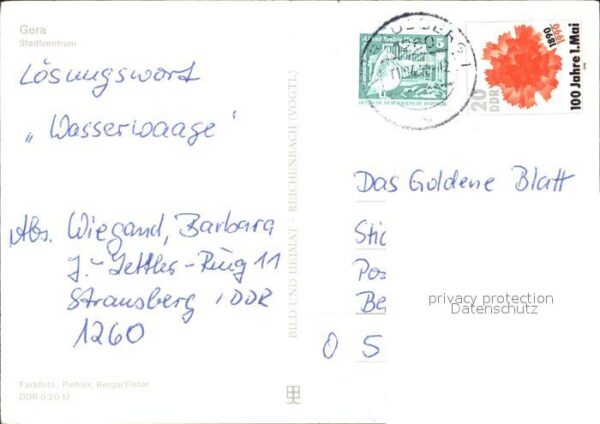 Gera
Stadtzentrum
Lösungswort
„Wasserwaage"
Abs. Wiegand, Barbara
Ring 11
Strausberg, DDR
1260
Farbfoto: Piehler, Berga/Elster
DDR 0,20 M
BILD UND HEIMAT · REICHENBACH (VOGTL)
5
20
DDR
100 Jahre 1. Mai
1890
1990
Das Goldene Blatt
Stic
Pos
Be
O 5
privacy protection
Datenschutz